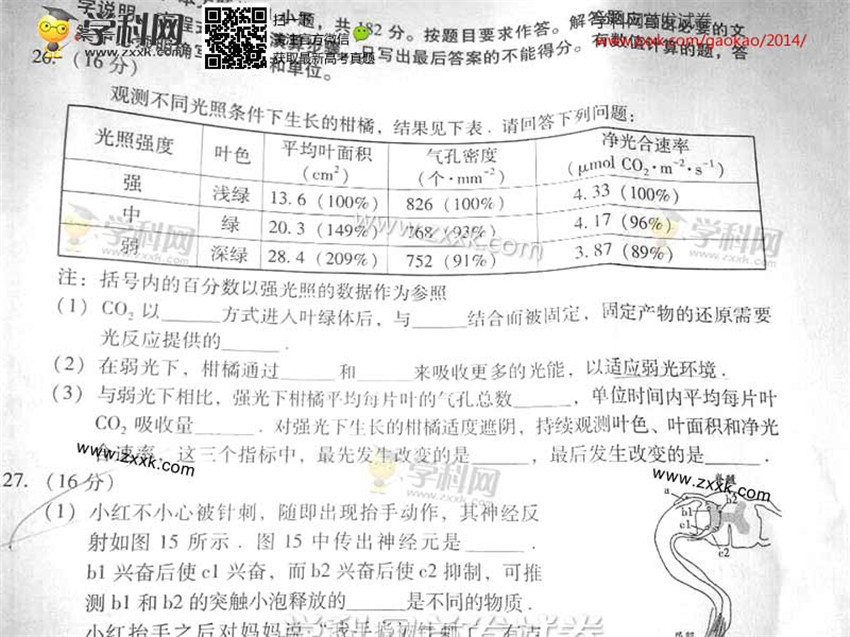 小题，共182分。按题目要求作答。解答题应
www.zxxk.com
扫一扫
关注官方微信
获取最新高考真题
学科网首发试卷
www.zxxk.com/gaokao/2014/
只写出最后答案的不能得分。有数值计算的题，答
和单位。
26.（16分）
观测不同光照条件下生长的柑橘，结果见下表．请回答下列问题：
光照强度 叶色 平均叶面积(cm²) 气孔密度(个·mm⁻²) 净光合速率(μmol CO₂·m⁻²·s⁻¹)
强 浅绿 13.6（100%） 826（100%） 4.33（100%）
中 绿 20.3（149%） 768（93%） 4.17（96%）
弱 深绿 28.4（209%） 752（91%） 3.87（89%）
学科网 www.zxxk.com
注：括号内的百分数以强光照的数据作为参照
（1）CO₂以______方式进入叶绿体后，与______结合而被固定，固定产物的还原需要
光反应提供的______．
（2）在弱光下，柑橘通过______和______来吸收更多的光能，以适应弱光环境．
（3）与弱光下相比，强光下柑橘平均每片叶的气孔总数______，单位时间内平均每片叶
CO₂吸收量______．对强光下生长的柑橘适度遮阴，持续观测叶色、叶面积和净光
合速率，这三个指标中，最先发生改变的是______，最后发生改变的是______．
www.zxxk.com
学科网
www.zxxk.com
www.zxxk.com
27.（16分）
（1）小红不小心被针刺，随即出现抬手动作，其神经反
射如图15所示．图15中传出神经元是______．
b1兴奋后使c1兴奋，而b2兴奋后使c2抑制，可推
测b1和b2的突触小泡释放的______是不同的物质．
a
b1
b2
c1
c2
小红抬手之后对妈妈说